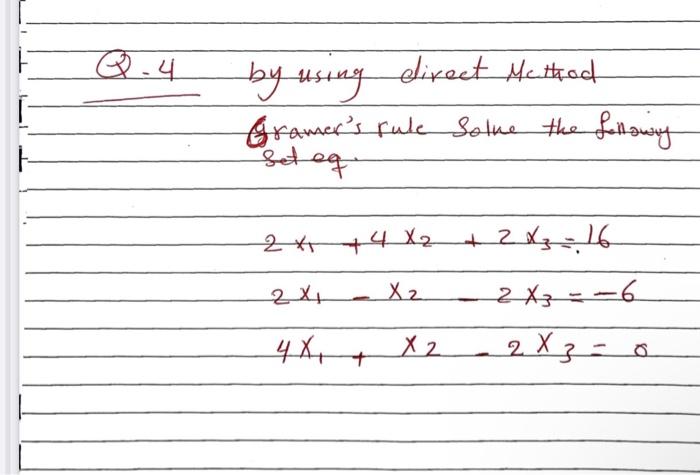 Q-4 by using direct Method
Gramer's rule Solve the following
Set eq.
2 x₁ + 4 x₂ + 2 x₃ = 16
2 x₁ - x₂ - 2 x₃ = -6
4 x₁ + x₂ - 2 x₃ = 0